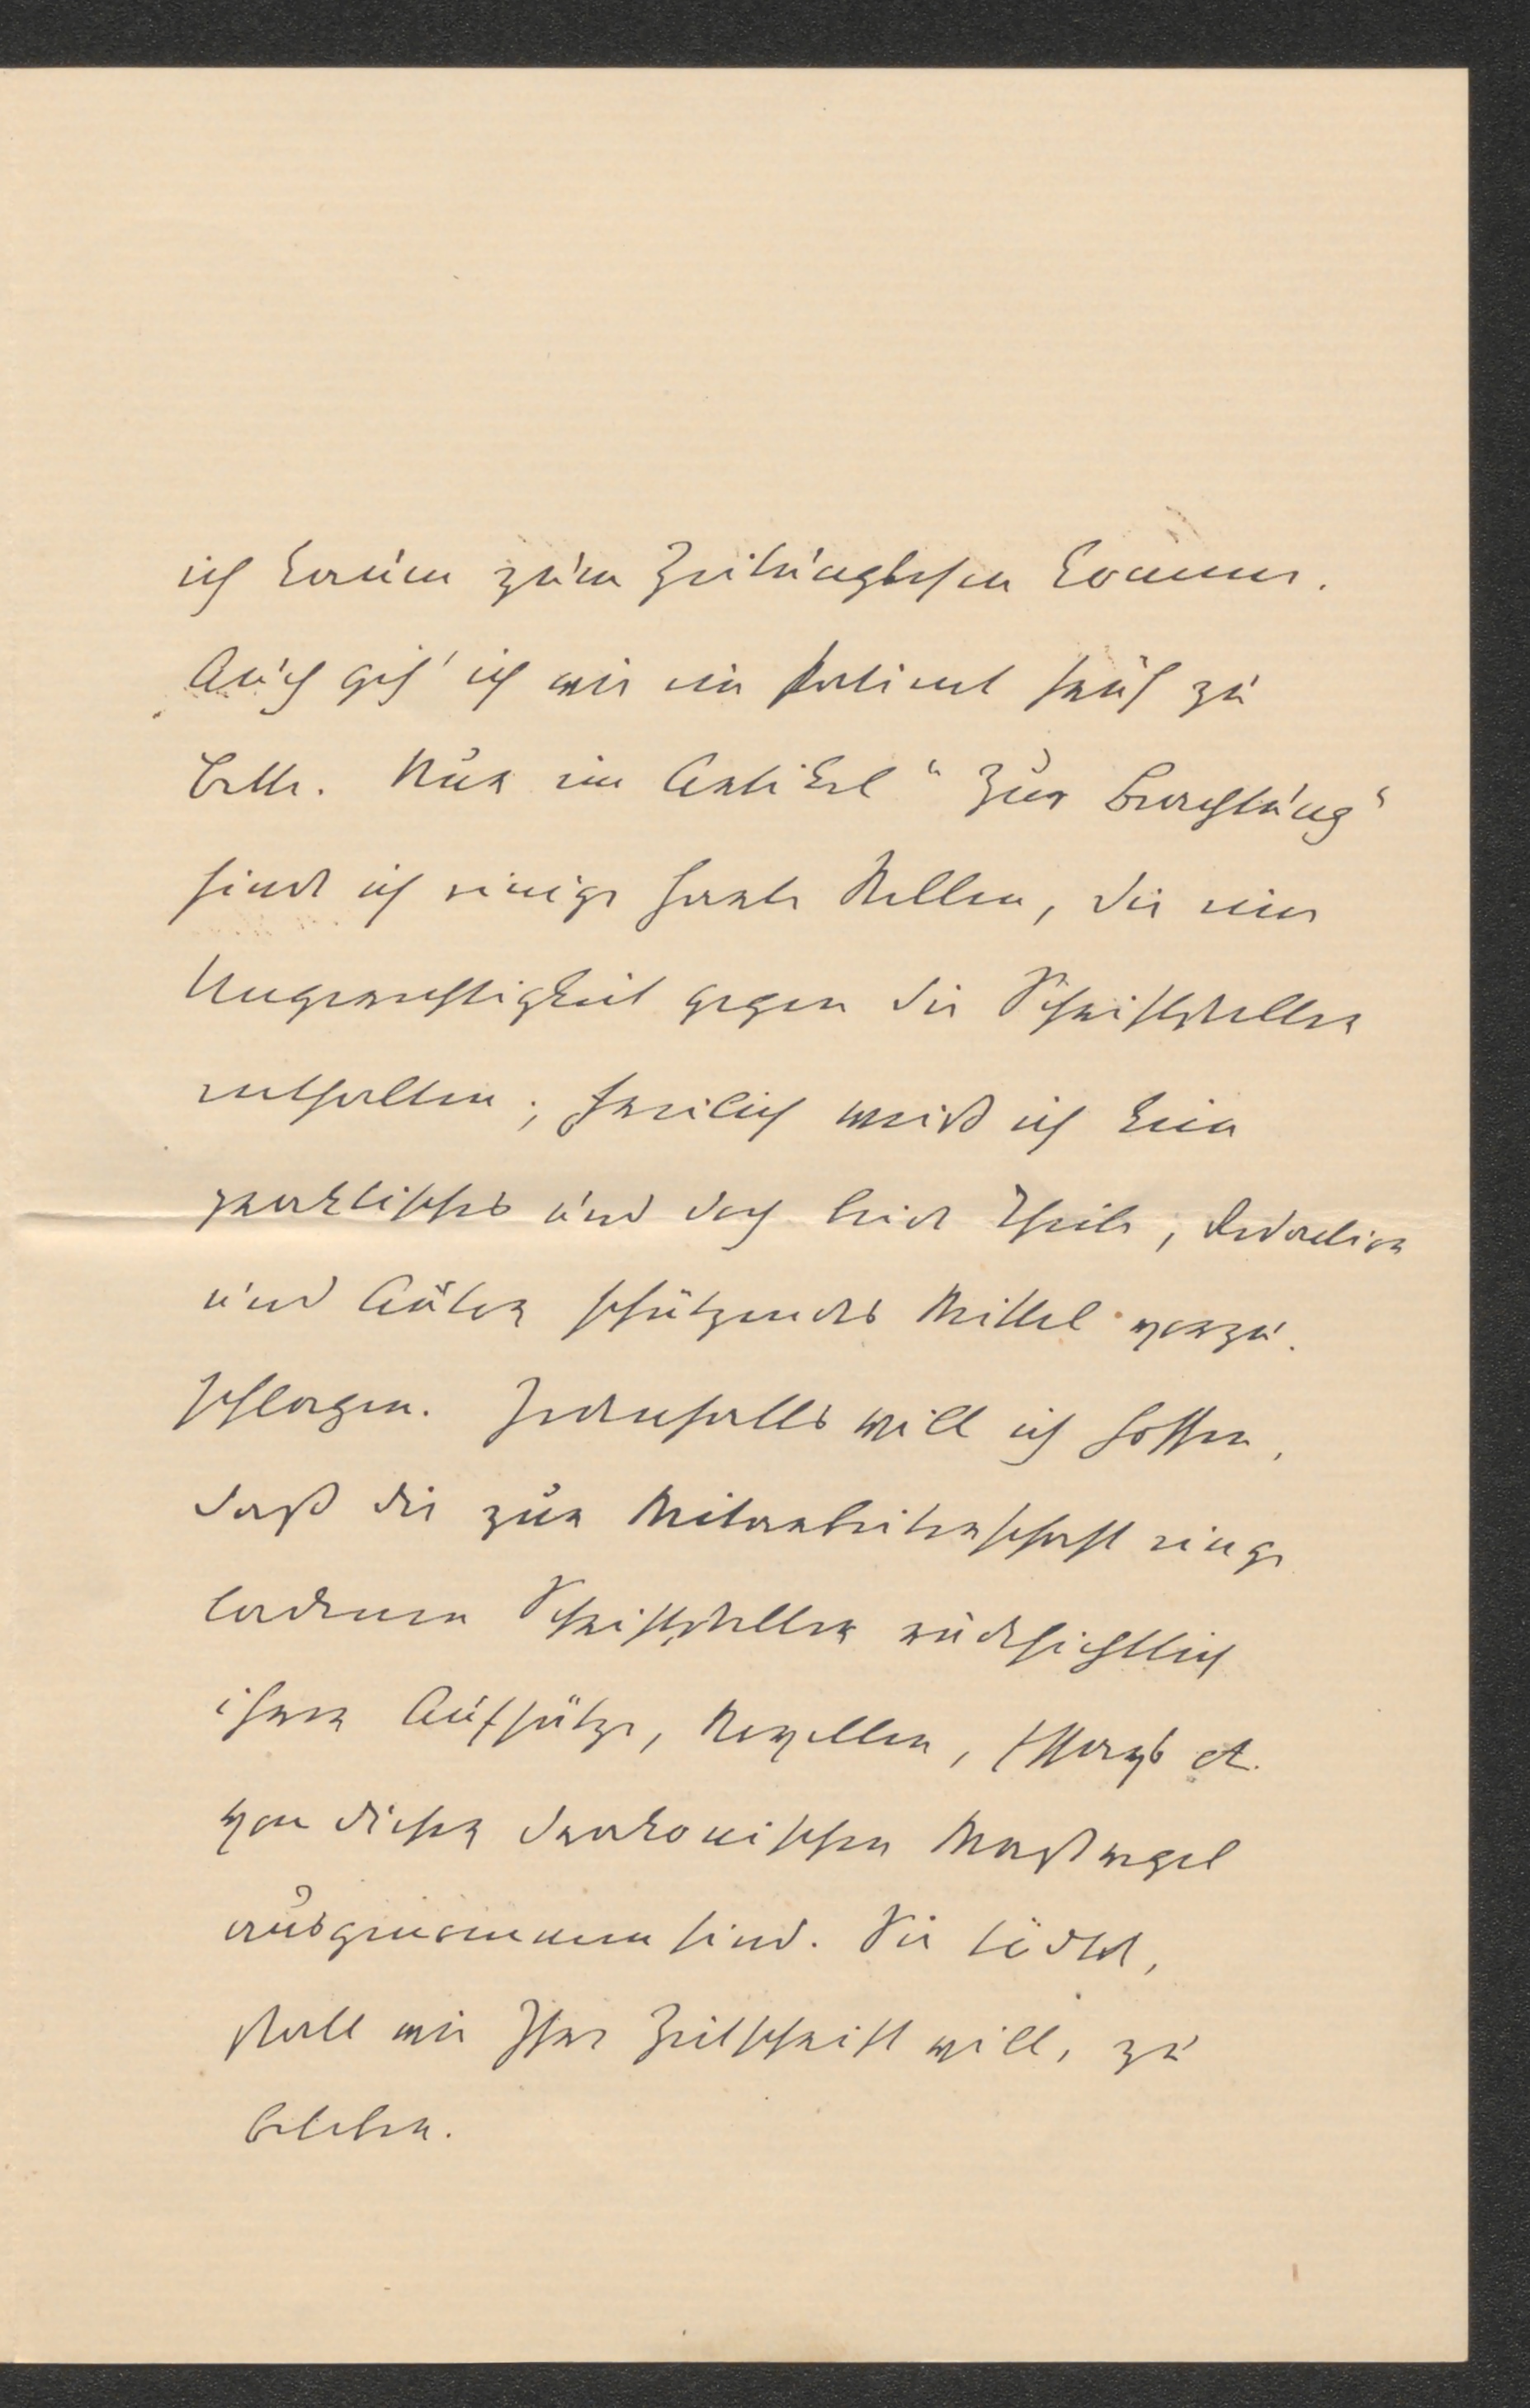 ich kaum zum Zeitunglesen komme.
Auch geh' ich wie ein Patient früh zu
Bette. Nur im Artikel "Zur Beachtung"
find ich einige harte Stellen, die eine
Ungerechtigkeit gegen die Schriftsteller
enthalten; freilich weiß ich kein
praktisches und doch beide Theile, Redaktion
und Autor schützendes Mittel vorzu
schlagen. Jedenfalls will ich hoffen,
daß die zur Mitarbeiterschaft einge
ladenen Schriftsteller rücksichtlich
ihrer Aufsätze, Novellen, Essays etc.
von dieser drakonischen Maßregel
ausgenommen sind. Sie tödtet,
statt wie Ihre Zeitschrift will, zu
beleben.